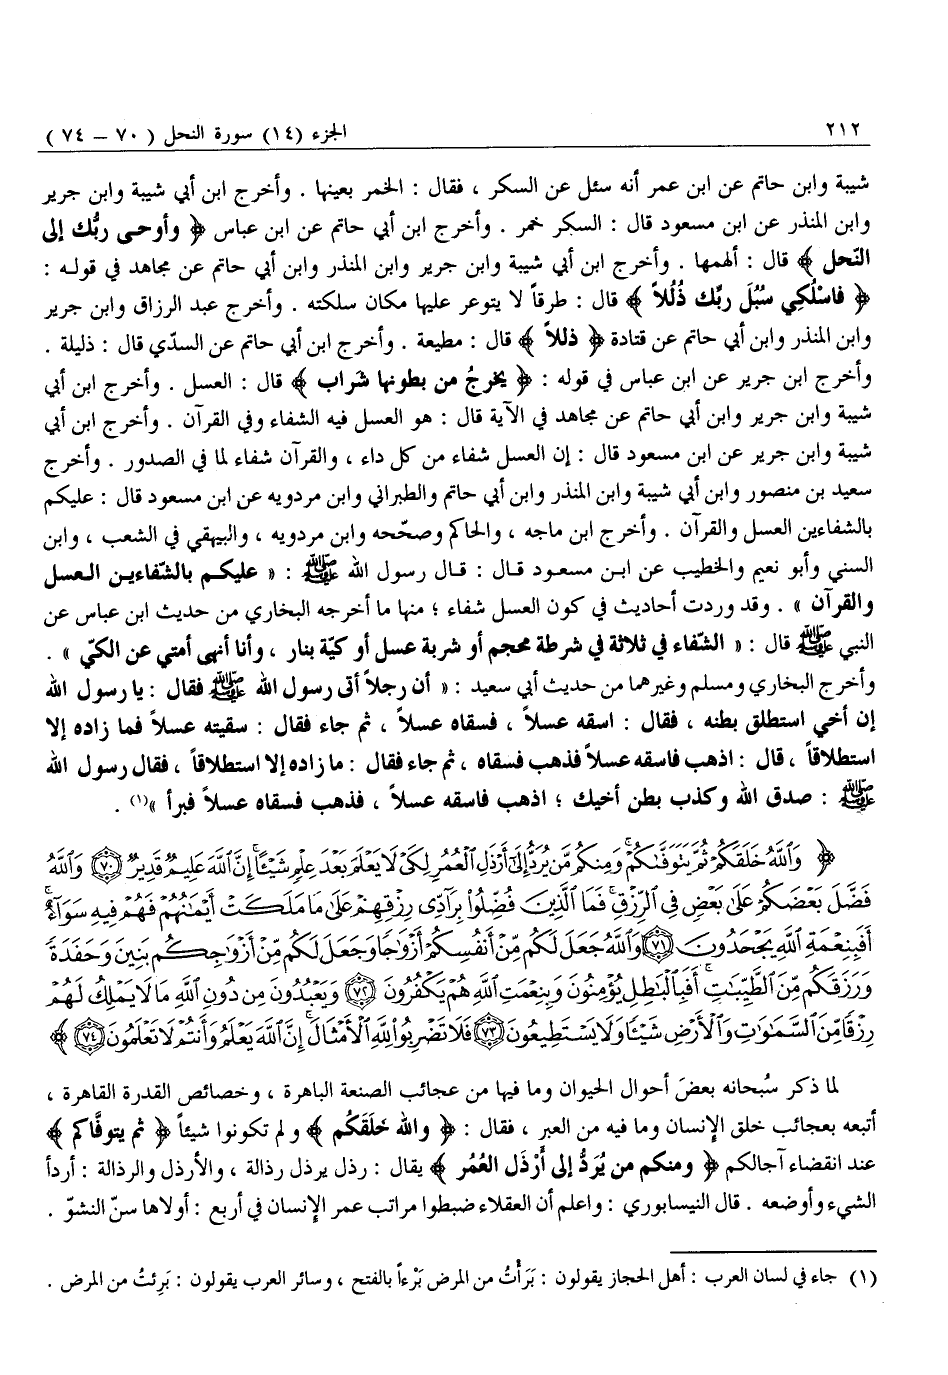 ٢١٢ الجزء (١٤) سورة النحل ( ٧٠ – ٧٤ )
شيبة وابن حاتم عن ابن عمر أنه سئل عن السكر ، فقال : الخمر بعينها . وأخرج ابن أبي شيبة وابن جرير
وابن المنذر عن ابن مسعود قال : السكر خمر . وأخرج ابن أبي حاتم عن ابن عباس ﴿ وأوحى ربُّك إلى
النّحل ﴾ قال : ألهمها . وأخرج ابن أبي شيبة وابن جرير وابن المنذر وابن أبي حاتم عن مجاهد في قوله :
﴿ فاسْلُكِي سُبُلَ ربِّك ذُلُلاً ﴾ قال : طرقاً لا يتوعر عليها مكان سلكته . وأخرج عبد الرزاق وابن جرير
وابن المنذر وابن أبي حاتم عن قتادة ﴿ ذللاً ﴾ قال : مطيعة . وأخرج ابن أبي حاتم عن السدّي قال : ذليلة .
وأخرج ابن جرير عن ابن عباس في قوله : ﴿ يخرجُ من بطونها شراب ﴾ قال : العسل . وأخرج ابن أبي
شيبة وابن جرير وابن أبي حاتم عن مجاهد في الآية قال : هو العسل فيه الشفاء وفي القرآن . وأخرج ابن أبي
شيبة وابن جرير عن ابن مسعود قال : إن العسل شفاء من كل داء ، والقرآن شفاء لما في الصدور . وأخرج
سعيد بن منصور وابن أبي شيبة وابن المنذر وابن أبي حاتم والطبراني وابن مردويه عن ابن مسعود قال : عليكم
بالشفاءين العسل والقرآن . وأخرج ابن ماجه ، والحاكم وصحّحه وابن مردويه ، والبيهقي في الشعب ، وابن
السني وأبو نعيم والخطيب عن ابن مسعود قال : قال رسول الله ﷺ : « عليكم بالشّفاءين العسل
والقرآن » . وقد وردت أحاديث في كون العسل شفاء ؛ منها ما أخرجه البخاري من حديث ابن عباس عن
النبي ﷺ قال : « الشّفاء في ثلاثة في شرطة محجم أو شربة عسل أو كيّة بنار ، وأنا أنهى أمتي عن الكيّ » .
وأخرج البخاري ومسلم وغيرهما من حديث أبي سعيد : « أن رجلاً أتى رسول الله ﷺ فقال : يا رسول الله
إن أخي استطلق بطنه ، فقال : اسقه عسلاً ، فسقاه عسلاً ، ثم جاء فقال : سقيته عسلاً فما زاده إلا
استطلاقاً ، قال : اذهب فاسقه عسلاً فذهب فسقاه ، ثم جاء فقال : ما زاده إلا استطلاقاً ، فقال رسول الله
ﷺ : صدق الله وكذب بطن أخيك ؛ اذهب فاسقه عسلاً ، فذهب فسقاه عسلاً فبرأ »(١) .
﴿ وَٱللَّهُ خَلَقَكُمْ ثُمَّ يَتَوَفَّىٰكُمْ ۚ وَمِنكُم مَّن يُرَدُّ إِلَىٰٓ أَرْذَلِ ٱلْعُمُرِ لِكَىْ لَا يَعْلَمَ بَعْدَ عِلْمٍ شَيْـًٔا ۚ إِنَّ ٱللَّهَ عَلِيمٌ قَدِيرٌ ٧٠ وَٱللَّهُ
فَضَّلَ بَعْضَكُمْ عَلَىٰ بَعْضٍ فِى ٱلرِّزْقِ ۚ فَمَا ٱلَّذِينَ فُضِّلُوا۟ بِرَآدِّى رِزْقِهِمْ عَلَىٰ مَا مَلَكَتْ أَيْمَـٰنُهُمْ فَهُمْ فِيهِ سَوَآءٌ ۚ
أَفَبِنِعْمَةِ ٱللَّهِ يَجْحَدُونَ ٧١ وَٱللَّهُ جَعَلَ لَكُم مِّنْ أَنفُسِكُمْ أَزْوَٰجًا وَجَعَلَ لَكُم مِّنْ أَزْوَٰجِكُم بَنِينَ وَحَفَدَةً
وَرَزَقَكُم مِّنَ ٱلطَّيِّبَـٰتِ ۚ أَفَبِٱلْبَـٰطِلِ يُؤْمِنُونَ وَبِنِعْمَتِ ٱللَّهِ هُمْ يَكْفُرُونَ ٧٢ وَيَعْبُدُونَ مِن دُونِ ٱللَّهِ مَا لَا يَمْلِكُ لَهُمْ
رِزْقًا مِّنَ ٱلسَّمَـٰوَٰتِ وَٱلْأَرْضِ شَيْـًٔا وَلَا يَسْتَطِيعُونَ ٧٣ فَلَا تَضْرِبُوا۟ لِلَّهِ ٱلْأَمْثَالَ ۚ إِنَّ ٱللَّهَ يَعْلَمُ وَأَنتُمْ لَا تَعْلَمُونَ ٧٤ ﴾
لما ذكر سُبحانه بعضَ أحوال الحيوان وما فيها من عجائب الصنعة الباهرة ، وخصائص القدرة القاهرة ،
أتبعه بعجائب خلق الإنسان وما فيه من العبر ، فقال : ﴿ والله خَلَقَكُم ﴾ ولم تكونوا شيئاً ﴿ ثم يتوفَّاكم ﴾
عند انقضاء آجالكم ﴿ ومنكم من يُرَدُّ إلى أَرْذَل العُمُر ﴾ يقال : رذل يرذل رذالة ، والأرذل والرذالة : أردأ
الشيء وأوضعه . قال النيسابوري : واعلم أن العقلاء ضبطوا مراتب عمر الإنسان في أربع : أولاها سنّ النشوّ .
(١) جاء في لسان العرب : أهل الحجاز يقولون : بَرَأْتُ من المرض بَرْءاً بالفتح ، وسائر العرب يقولون : بَرِئتُ من المرض .